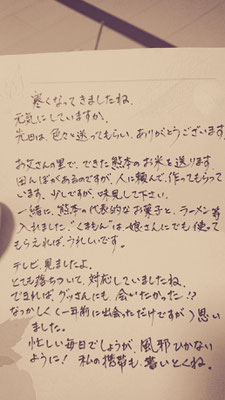 寒くなってきましたね
元気にしていますか。
先日は、色々と送ってもらい、ありがとうございます
お父さんの里で、できた熊本のお米を送ります
田んぼがあるのですが、人に頼んで、作ってもらって
います。少しですが、味見して下さい。
一緒に、熊本の代表的なお菓子と、ラーメン等
入れました。"くまもん"は、娘さんにでも使って
もらえれば、うれしいです。
テレビ、見ましたよ。
とても落ちついて、対応していましたね。
できれば、グッさんにも、会いたかった!?
なつかしく(一年前に出会っただけですが)思い
ました。
忙しい毎日でしょうが、風邪ひかない
ように! 私の携帯も、書いとくね。